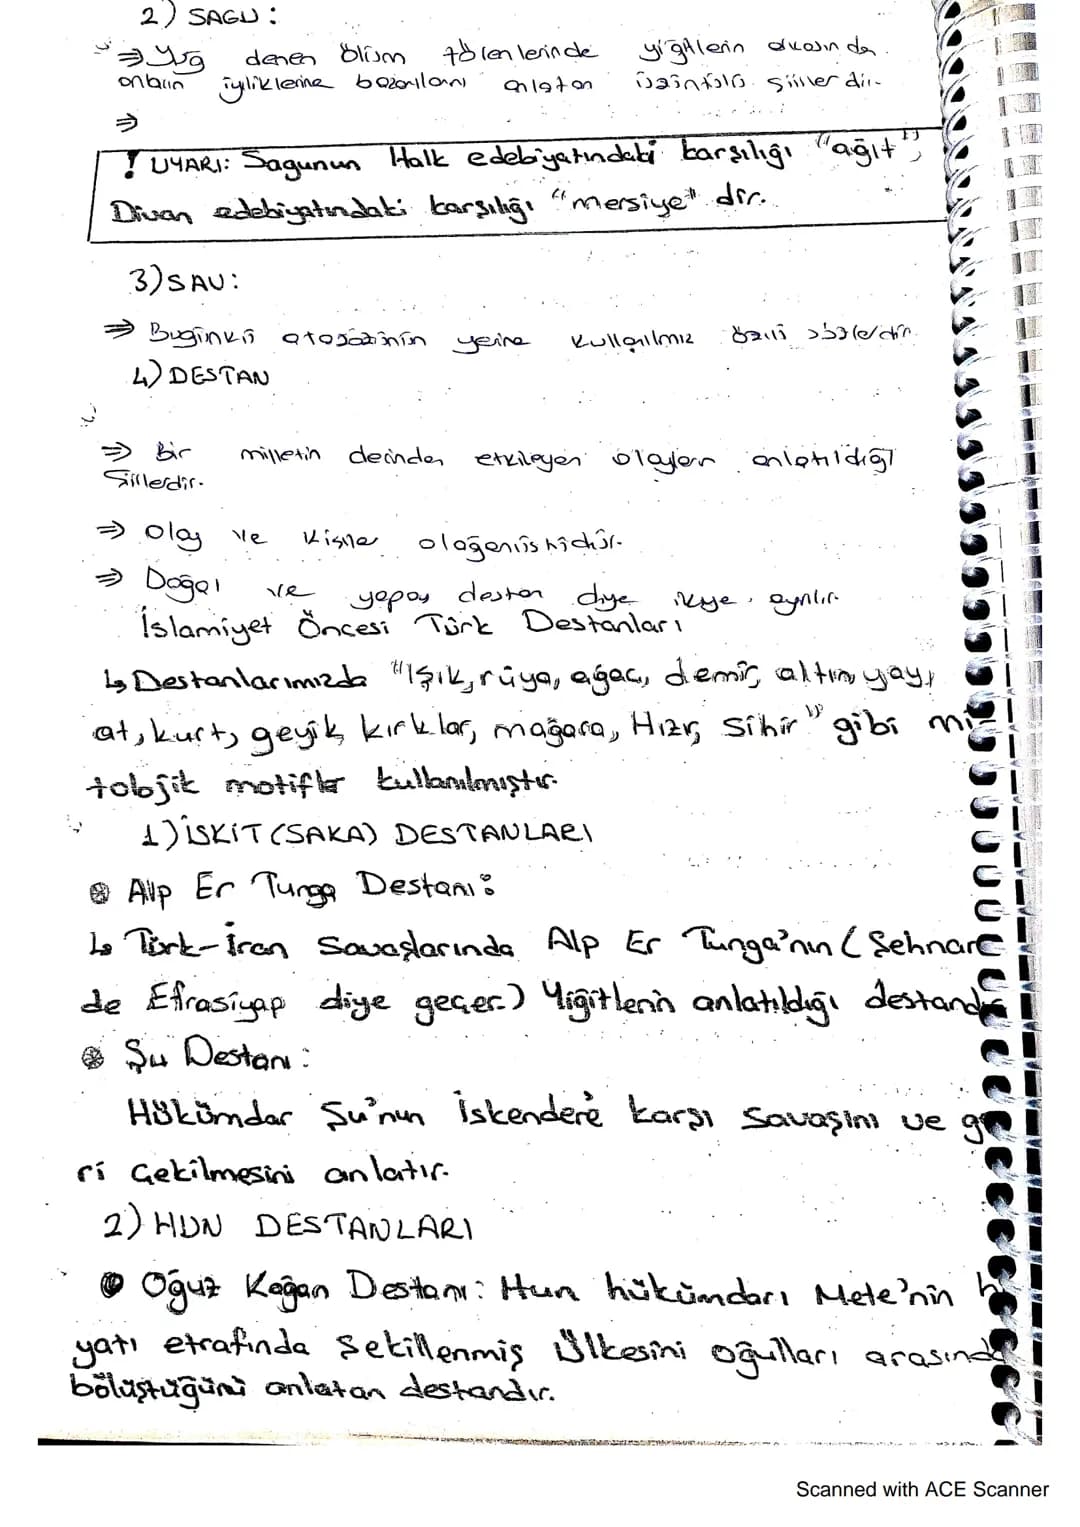 2) SAGU:
⇒ Yuğ denen ölüm törenlerinde yiğitlerin arkasında
onların iyiliklerine anlatan şiirlerdir.
⇒
! UYARI: Sagunun Halk edebiyatındaki karşılığı "ağıt",
Divan edebiyatındaki karşılığı "mersiye" dir.
3) SAV:
⇒ Bugünkü atasözünün yerine kullanılmız özlü sözlerdir.
4) DESTAN
⇒ Bir milletin derinden etkileyen olayların anlatıldığı
Şiirlerdir.
⇒ Olay ve Kişiler olağanüstüdür.
⇒ Doğal ve yapay destan diye ikiye ayrılır.
İslamiyet Öncesi Türk Destanları
↳ Destanlarımızda "Işık, rüya, ağaç, demir, altın, yay,
at, kurt, geyik, kırklar, mağara, Hızır, Sihir" gibi mi-
tolojik motifler kullanılmıştır.
1) İSKİT (SAKA) DESTANLARI
Alp Er Tunga Destanı:
↳ Türk-İran Savaşlarında Alp Er Tunga'nın (Şehname
de Efrasiyap diye geçer.) Yiğitlerin anlatıldığı destandır
Şu Destanı:
Hükümdar Şu'nun İskendere karşı Savaşını ve ge
ri Çekilmesini anlatır.
2) HUN DESTANLARI
Oğuz Kağan Destanı: Hun hükümdarı Mete'nin ha
yatı etrafında Şekillenmiş Ülkesini oğulları arasında
bölüştüğünü anlatan destandır.
Scanned with ACE Scanner